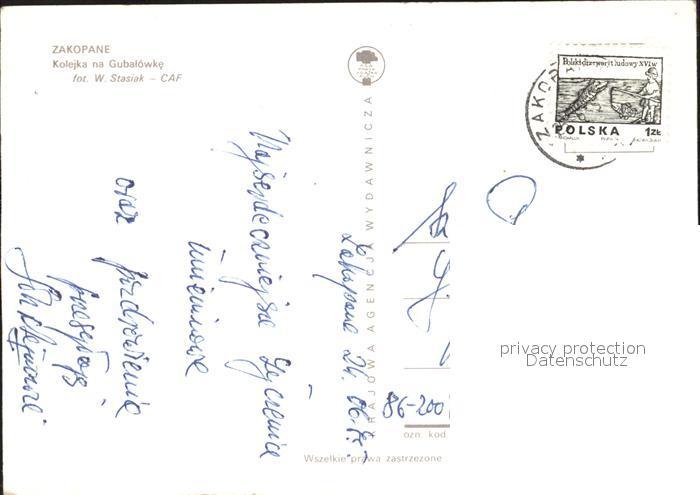 ZAKOPANE
Kolejka na Gubałówkę
fot. W. Stasiak — CAF
KRAJOWA AGENCJA WYDAWNICZA
ZAKOP
Polski drzeworyt ludowy XVI w
POLSKA 1ZŁ
Zakopane 24. 06.
Najserdeczniejsze życzenia
imieninowe
oraz pozdrowienia
przesyłają
86-200
ozn. kod
Wszelkie prawa zastrzeżone
privacy protection
Datenschutz